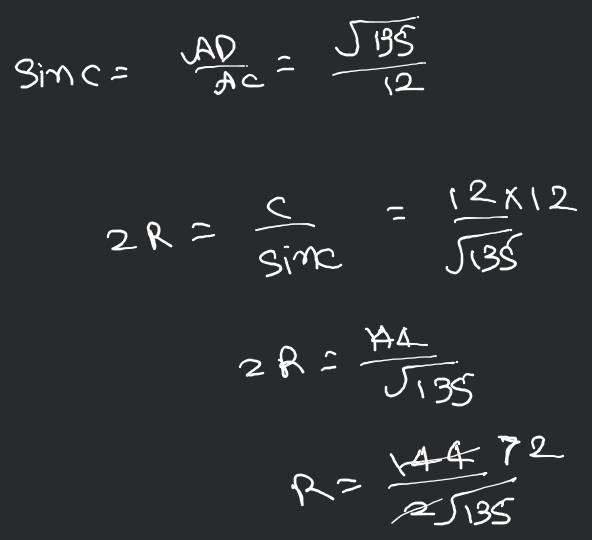 Sin C = AD/AC = √135/12
2R = C/Sinc = 12×12/√135
2R = 144/√135
R = 144 72/2√135